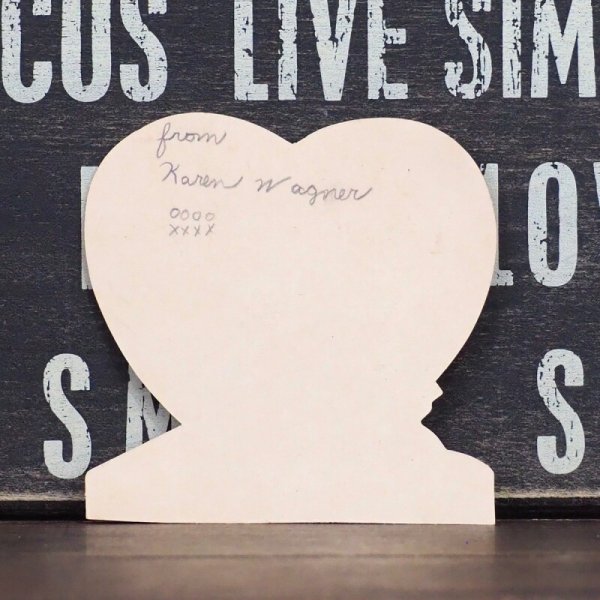 CUS LIVE SIM
LO
from
Karen Wagner
oooo
xxxx
S M
S